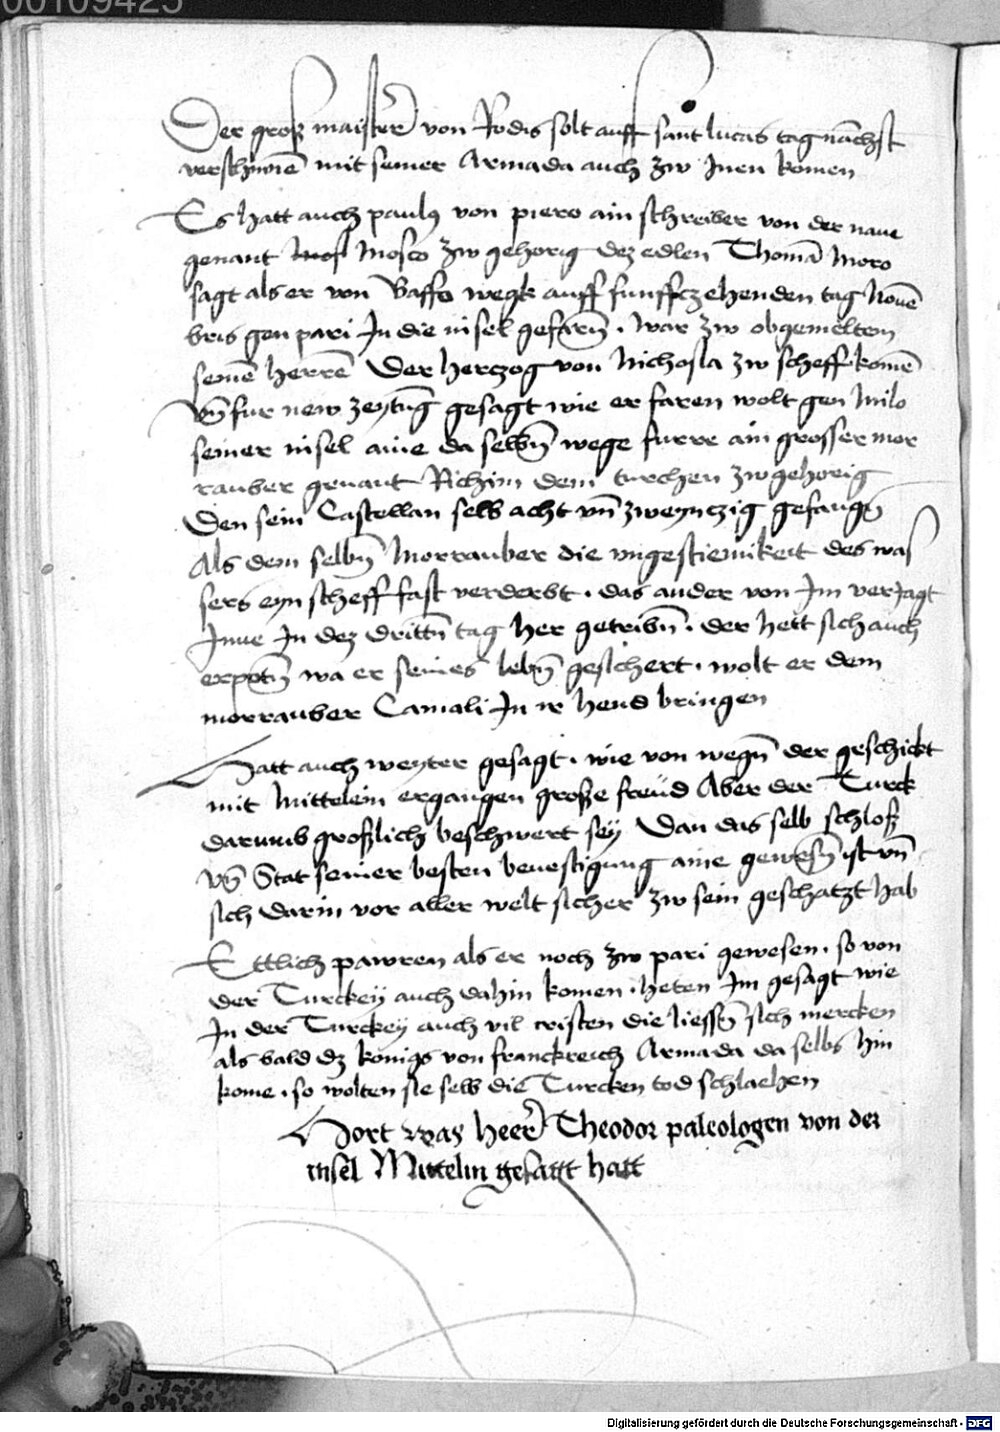 00109425
Der groß maister von Rodis solt auff sant lucas tag nachst
verschinnē mit seiner Armada auch zw Inen komen
Es hatt auch paulꝯ von piero ain schreiber von der naue
genant Mosco zw gehorig dez edlen Thomā Moro
sagt als er von Baffo wegk auff funffczehenden tag Nouē
bris gen pari In die insel gefarn̄ . war zw obgemeltem
seinē herrē Der herczog von Nichosia zw scheff komē
vn̄ fur new zeytūg gesagt wie er faren wolt gen Milo
seiner insel aine da selbn̄ wege furre ain grosser mor
rauber genant Richim dem turchen zwgehorig
Den sein Castellan selb acht vn̄ zweynczig gefangn̄
Als dem selbn̄ Morrauber die vngestiemikeit des was
sers eyn scheff fast verderbt . das ander von Im verJagt
Inne In dez drittn̄ tag her getribn̄ . der hett sich auch
erpotn̄ wa er seines lebn̄ gesichert . wolt er dem
morrauber Camali In ir hend bringen
Hatt auch weyter gesagt . wie von wegn̄ der geschickt
mit Mittelein ergangen große freüd Aber der Turck
darumb großlich beschwert sey Dan das selb schloß
vn̄ Stat seiner besten beuestigung aine gewesn̄ ist vn̄
sich darin vor aller welt sicher zw sein geschatzt hab
Ettlich pawren als er noch zw pari gewesen . so von
der Turckey auch dahin komen . heten Im gesagt wie
In der Turckey auch vil cristen die liessn̄ sich mercken
als bald dz konigs von franckreich Armada da selbs hin
kome . so wolten sie selb die Turcken tod schlachen
Hort was heer Theodor paleologen von der
insel Mittelin gesagt hatt
Digitalisierung gefördert durch die Deutsche Forschungsgemeinschaft - DFG